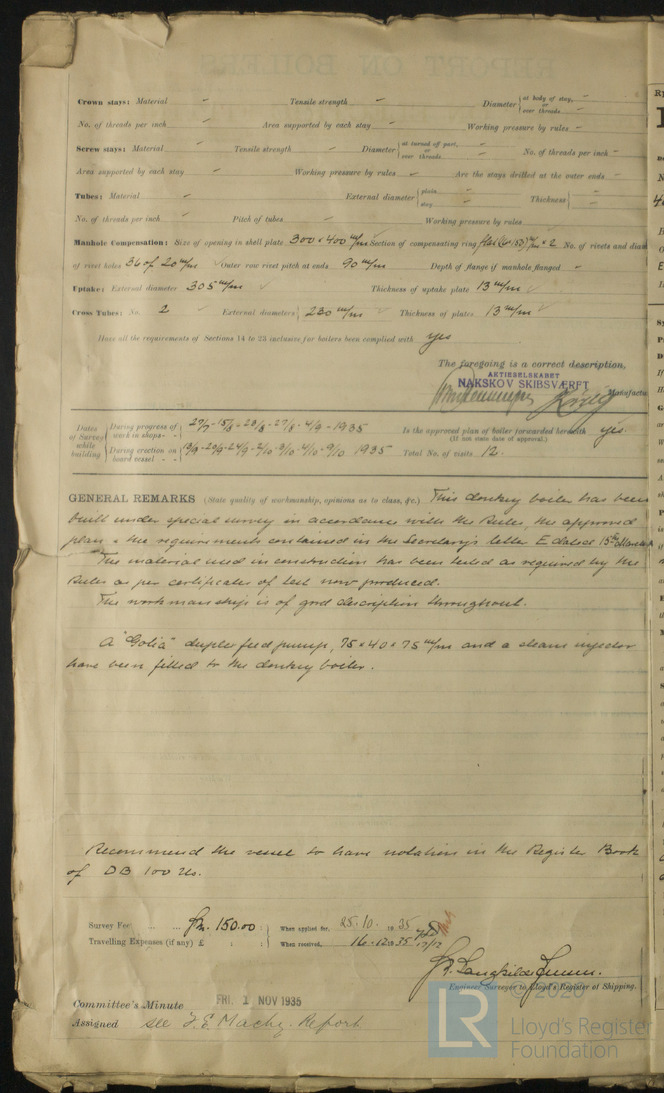 Crown stays: Material - Tensile strength - Diameter { at body of stay, or over threads -
No. of threads per inch - Area supported by each stay - Working pressure by rules -
Screw stays: Material - Tensile strength - Diameter { at turned off part, or over threads - No. of threads per inch -
Area supported by each stay - Working pressure by rules - Are the stays drilled at the outer ends -
Tubes: Material - External diameter { plain - stay - Thickness { -
No. of threads per inch - Pitch of tubes - Working pressure by rules -
Manhole Compensation: Size of opening in shell plate 300 x 400 m/m Section of compensating ring No. of rivets and diam
of rivet holes 36 of 20 m/m Outer row rivet pitch at ends 90 m/m Depth of flange if manhole flanged -
Uptake: External diameter 305 m/m Thickness of uptake plate 13 m/m
Cross Tubes: No. 2 External diameters { 230 m/m Thickness of plates 13 m/m
Have all the requirements of Sections 14 to 23 inclusive for boilers been complied with yes
The foregoing is a correct description,
AKTIESELSKABET
NAKSKOV SKIBSVÆRFT Manufactu
Dates of Survey while building { During progress of work in shops - - 27/7 - 15/8 - 23/8 - 27/8 - 4/9 - 1935 Is the approved plan of boiler forwarded herewith yes.
(If not state date of approval.)
During erection on board vessel - - 13/9 - 20/9 - 24/9 - 2/10 - 3/10 - 4/10 - 9/10 1935 Total No. of visits 12.
GENERAL REMARKS (State quality of workmanship, opinions as to class, &c.) This donkey boiler has been
built under special survey in accordance with the Rules, the approved
plan & the requirements contained in the Secretary's letter E dated 15th March
The material used in construction has been tested as required by the
Rules as per certificates of test now produced.
The workmanship is of good description throughout.
A "Golia" duplex feed pump, 75 x 40 x 75 m/m and a steam injector
have been fitted to the donkey boiler.
Recommend the vessel to have notation in the Register Book
of DB 100 lbs.
Survey Fee ... ... Kr. 150.00 When applied for, 25.10. 1935
Travelling Expenses (if any) £ : : When received, 16.12.1935
Engineer Surveyor to Lloyd's Register of Shipping.
Committee's Minute FRI. 1 NOV 1935
Assigned see F.E. Machy. Report
© 2020
LR Lloyd's Register
Foundation